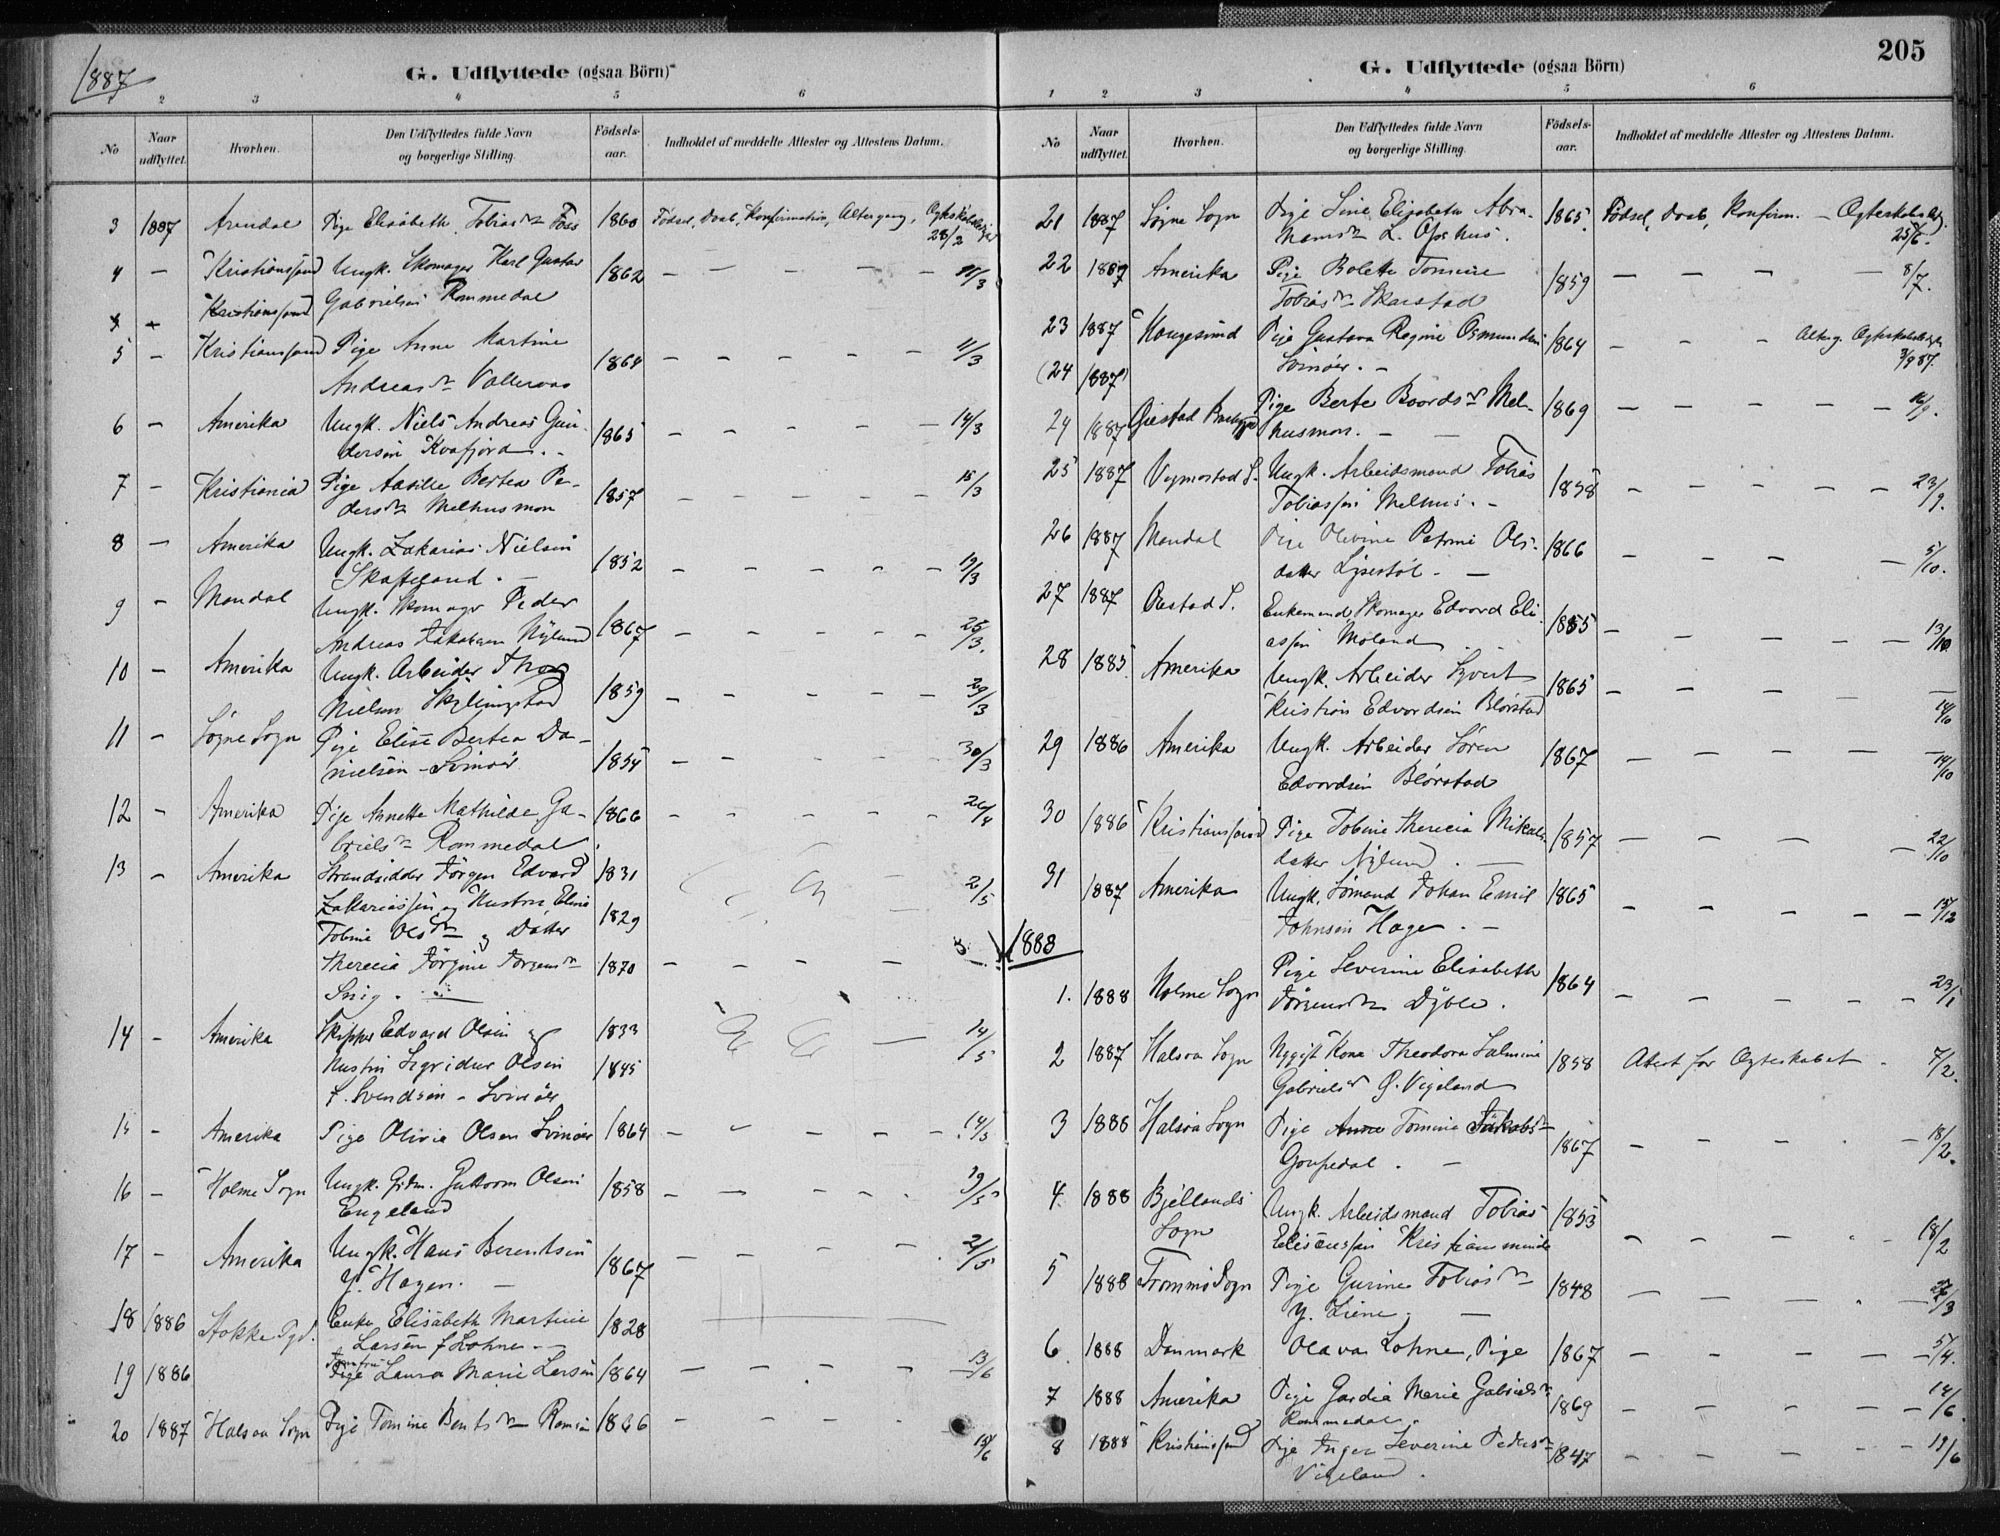 1887
G. Udflyttede (ogsaa Börn)
1 2 3 4 5 6
No
Naar udflyttet.
Hvorhen.
Den Udflyttedes fulde Navn og borgerlige Stilling.
Födsels-aar.
Indholdet af meddelte Attester og Attestens Datum.
3 1887 Arendal Pige Elisabeth Tobiasdr Foss 1860 Fødsel, Daab, Konfirmation, Altergang, 28/2
4 — Kristianssand Ungk. Skomager Karl Gustav 1862 — — — — 11/3
Kristianssand Gabrielsen Rommedal
5 — Kristianssand Pige Anne Martine 1864 — — — — 11/3
Andreasdr
6 — Amerika Ungk. Niels Andreas Gun- 1865 — — — — 14/3
dersen Kvafjord. -
7 — Kristiania Pige Aasille Bertea Pe- 1857 — — — — 15/3
dersdr Melhusmon
8 — Amerika Ungk. Zakarias Nielsen 1852 — — — — 19/3
Skofteland. —
9 — Mandal Ungk. Skomager Peder 1867 — — — — 25/3.
Andreas Jakobsen Nÿlund
10 — Amerika Ungk. Arbeider Thor 1859 — — — — 29/3
Nielsen
11 — Søgne Sogn Pige Elise Bertea Da- 1854 — — — — 30/3
nielsen - Svinøer
12 — Amerika Pige Annette Mathilde Ga- 1866 — — — — 26/4
brielsdr Rommedal
13 — Amerika Strandsidder Jørgen Edvard 1831 — 2/5
Zakariassen og Hustru Eline 1829
Tobine Olsdr og Datter
Therecia Jörgine Jørgensdr 1870 — — — —
Snig.
14 — Amerika Skipper Edvard Olsen og 1833 — 14/5
Hustru Sigridur Olsen 1845
f. Svendsen - Svinöer
15 — Amerika Pige Olivia Olsen Svinøer 1864 — — — — 14/5
16 — Holme Sogn Ungk. Guttorm Olsen 1858 — — — — 19/5
Engeland
17 — Amerika Ungk. Hans Berentsen 1867 — — — — 21/5
Y. Hagen. —
18 1886 Stokke Enke Elisabeth Martine 1828
Larsen f Lohne. —
19 1886 Jomfru Pige Laura Marie Larsen 1864 — — — — 13/6
20 1887 Halsaa Sogn Pige Tomine Berntsdr 1866 — — — — 15/6
205
G. Udflyttede (ogsaa Börn)
1 2 3 4 5 6
No
Naar udflyttet.
Hvorhen.
Den Udflyttedes fulde Navn og borgerlige Stilling.
Födsels-aar.
Indholdet af meddelte Attester og Attestens Datum.
21 1887 Søgne Sogn Pige Sine Elisabeth Abra- 1865 Fødsel, Daab, Konfirm. — 25/6.
hamsdr L.
22 1887 Amerika Pige Bolette Tomine 1859 — — — — 8/7.
Tobiasdr Skarstad
23 1887 Haugesund Pige Gustava Regine Osmundsen 1864 — — — Alterg. 3/9 87.
Svinøer. —
(24 1887)
24 1887 Pige Berte Baardsdr Mel- 1869 — — — — 16/9.
husmon. —
25 1887 Vigmostad S. Ungk. Arbeidsmand Tobias 1858 — — — — 23/9.
Tobiassen Melhus. -
26 1887 Mandal Pige Olivine Petrine Ols- 1866 — — — — 5/10.
datter —
27 1887 Enkemand Skomager Edvard Eli- 1855 — — — — 13/10
assen Moland
28 1885 Amerika Ungk. Arbeider Syvert 1865 — — — — 14/10
Kristian Edvardsen Blørstad
29 1886 Amerika Ungk. Arbeider Søren 1867 — — — — 14/10
Edvardsen Blørstad
30 1886 Kristianssand Pige Tobine Therecia Mikals- 1857 — — — — 22/10
datter Nÿlund. —
31 1887 Amerika Ungk. Sømand Johan Emil 1865 — — — — 15/12
Johnsen Hage. —
1888
1. 1888 Holme Sogn Pige Severine Elisabeth 1864 — — — — 23/1
Jørgensdr Dÿble.
2 1887 Halsaa Sogn Nygift Kone Theodora Salmine 1858 Atest for Ægteskabet. 7/2.
Gabrielsdr Ø. Vigeland
3 1888 Halsaa Sogn Pige Anne Tomine Jakobsdr 1867 — — — — 18/2.
—
4. 1888 Bjellands Ungk. Arbeidsmand Tobias 1853 — — — — 18/2
Sogn Kristiansminde
5 1888 Tromø Sogn Pige Gurine Tobiasdr 1848 — — — — 27/3
Y. Liene. —
6 1888 Danmark Olava Lohne, Pige 1867 — — — — 5/4.
7 1888 Amerika Pige Gardia Marie Gabrielsdr 1869 — — — — 14/6
Rommedal.
8 1888 Kristianssand Pige Inger Severine Pedersdr 1847 — — — — 19/6
Vigeland.